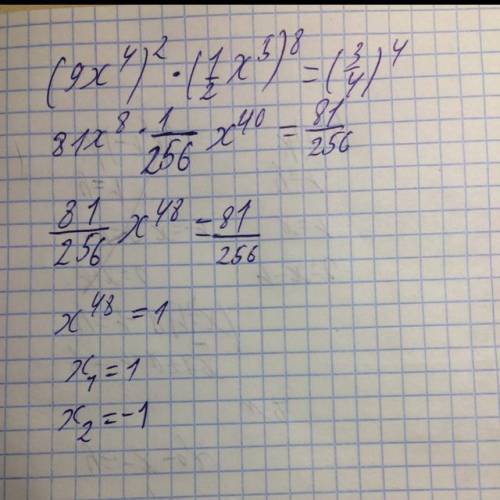 (9x⁴)² · (1/2 x⁵)⁸ = (3/4)⁴
81x⁸ · 1/256 x⁴⁰ = 81/256
81/256 x⁴⁸ = 81/256
x⁴⁸ = 1
x₁ = 1
x₂ = -1